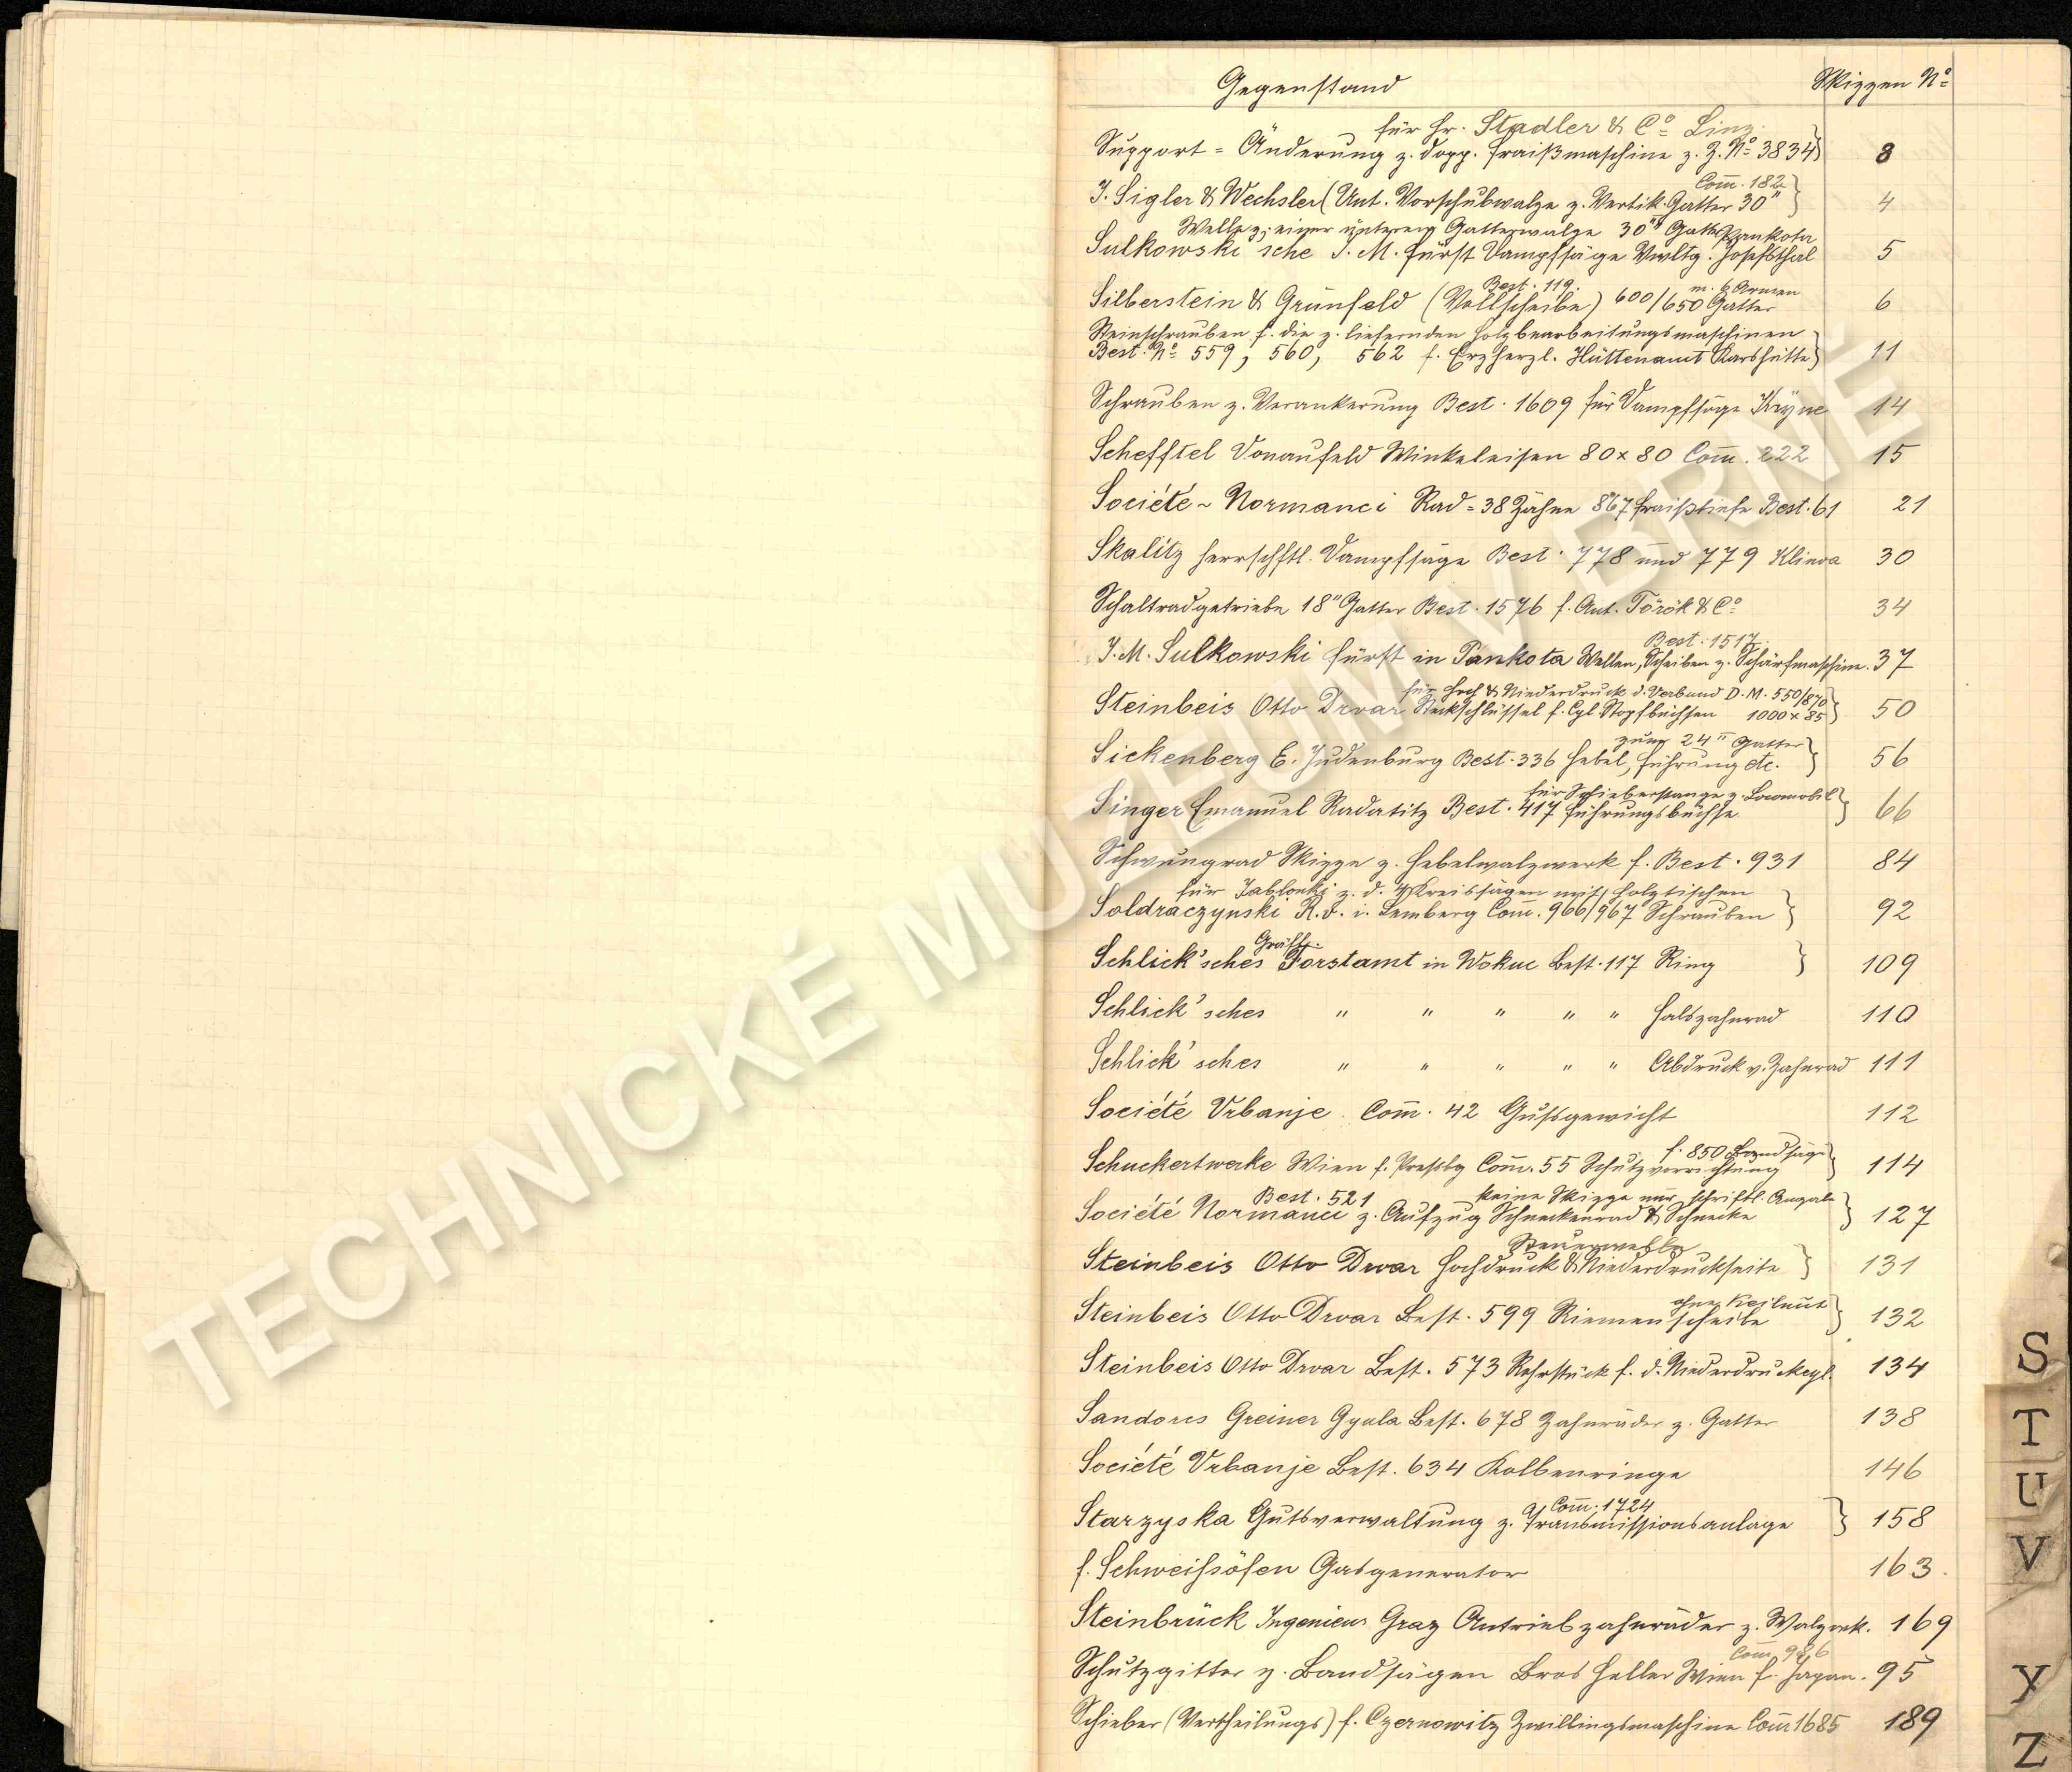 Gegenstand Skizzen Nº
für Hr. Stadler & Cº Linz.
Support = Änderung z. dopp. Fraißmaschine z. Z. Nº 3834 } 3
Com̅. 182
J. Sigler & Wechsler (Unt. Vorschubwalze z. Vertik. Gatter 30" } 4
Welle z. einer unteren Gatterwalze 30" Gatter Pankota
Sulkowski'sche J. M. Fürst Dampfsäge Vwltg. Josefsthal 5
Best. 119. m. 6 Armen
Silberstein & Grünfeld (Vollscheibe) 600/650 Gatter 6
Steinschrauben f. die z. liefernden Holzbearbeitungsmaschinen
Best. Nº 559, 560, 562 f. Erzherzl. Hüttenamt Karlshütte } 11
Schrauben z. Verankerung Best. 1609 für Dampfsäge 14
Schefftel Donaufeld Winkeleisen 80 x 80 Com̅. 222 15
Société ~ Normanci Rad = 38 Zähne 867 Fraißtiefe Best. 61 21
Skalitz Herrschftl. Dampfsäge Best. 778 und 779 Klinoa 30
Schaltradgetriebe 18" Gatter Best. 1576 f. Ant. Török & Cº 34
Best. 1517.
J. M. Sulkowski Fürst in Pankota Wellen, Scheiben z. Schärfmaschine. 37
für Hoch & Niederdruck d. Verbund D. M. 550/870
Steinbeis Otto Drvar Steckschlüssel f. Cyl Stopfbüchsen 1000 x 85 } 50
zum 24" Gatter
Sickenberg E. Judenburg Best. 336 Hebel, Führung etc. } 56
für Schieberstange z. Locomobil
Singer Emanuel Radatitz Best. 417 Führungsbüchse } 66
Schwungrad Skizze z. Hebelwalzwerk f. Best. 931 84
für Jablonki z. d. 4 Kreissägen mit Holztischen
Soldraczynski R. v. i. Lemberg Com̅. 966/967 Schrauben } 92
Gräfl.
Schlick'sches Forstamt in Wokuc Best. 117 Ring } 109
Schlick'sches " " " " " Halszahnrad 110
Schlick'sches " " " " " Abdruck v. Zahnrad 111
Société Vrbanje Com̅. 42 Gußgewicht 112
f. 850 Bandsäge
Schuckertwerke Wien f. Preßbg Com̅. 55 Schutzvorrichtung } 114
Best. 521 keine Skizze nur schriftl. Angabe
Société Normanci z. Aufzug Schneckenrad & Schnecke } 127
Steuerwelle
Steinbeis Otto Drvar Hochdruck & Niederdruckseite } 131
ohne Keilnut
Steinbeis Otto Drvar Best. 599 Riemenscheibe } 132
Steinbeis Otto Drvar Best. 573 Rohrstück f. d. Niederdruckcyl. 134
Sandorcs Greiner Gyula Best. 678 Zahnräder z. Gatter 138
Société Vrbanje Best. 634 Kolbenringe 146
Com̅. 1724
Starzyska Gutsverwaltung z. Transmissionsanlage } 158
f. Schweißöfen Gasgenerator 163.
Steinbrück Ingenieur Graz Antriebzahnräder z. Walzwk. 169
Com̅ 986
Schutzgitter z. Bandsägen Bros Heller Wien f. Japan. 95
Schieber (Vertheilungs) f. Czernowitz Zwillingsmaschine Com̅ 1685 189
S
T
U
V
Y
Z
TECHNICKÉ MUZEUM V BRNĚ